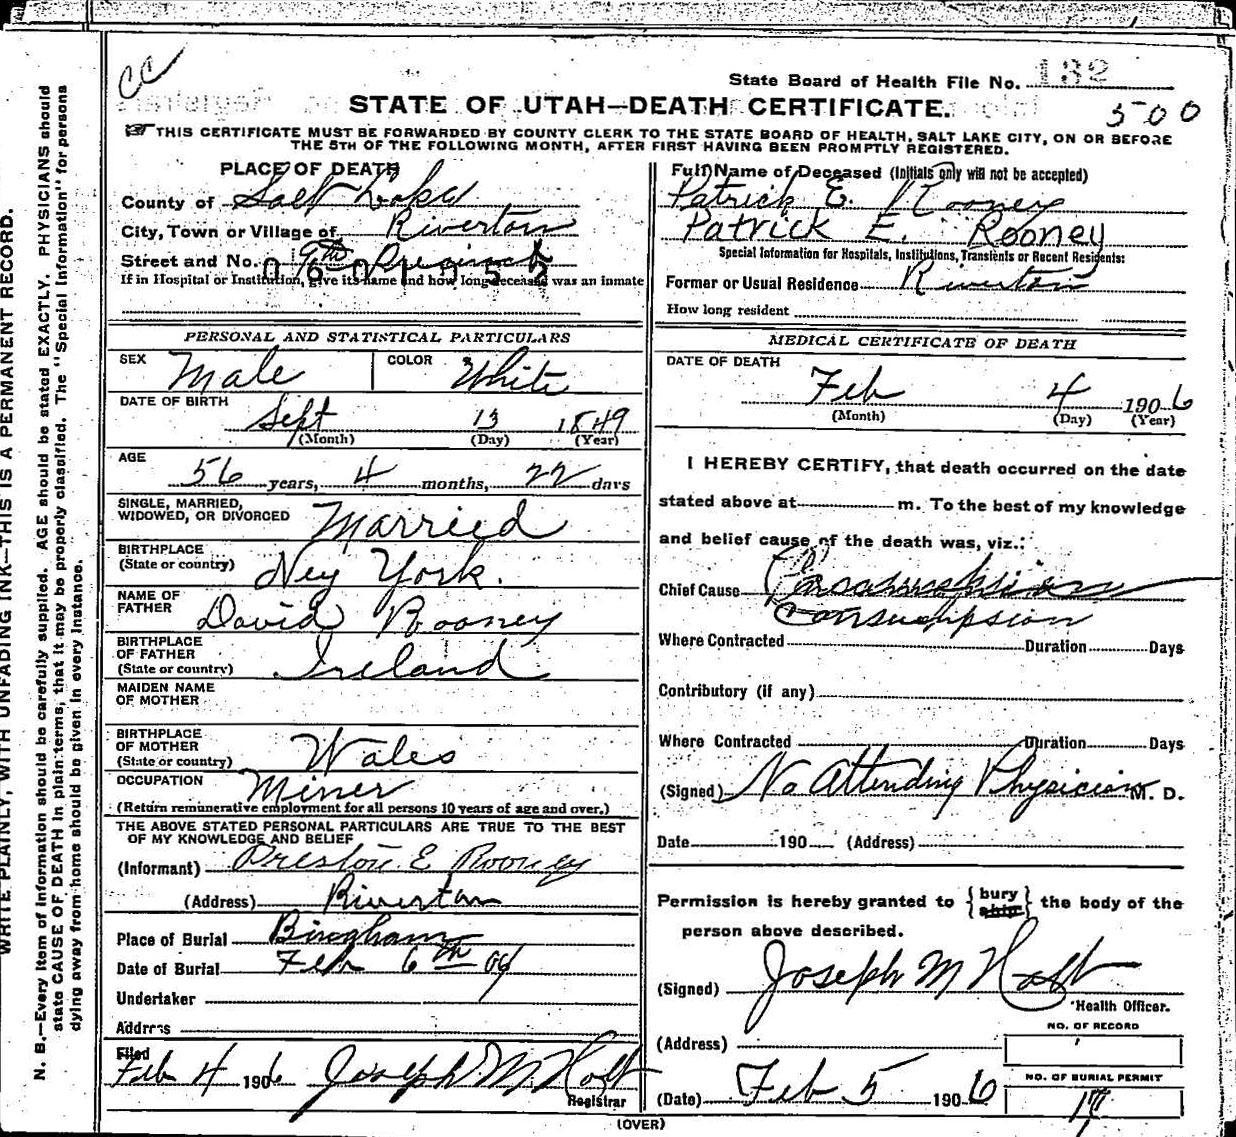 CC
State Board of Health File No. 132
STATE OF UTAH—DEATH CERTIFICATE.
500
THIS CERTIFICATE MUST BE FORWARDED BY COUNTY CLERK TO THE STATE BOARD OF HEALTH, SALT LAKE CITY, ON OR BEFORE
THE 5TH OF THE FOLLOWING MONTH, AFTER FIRST HAVING BEEN PROMPTLY REGISTERED.
PLACE OF DEATH
County of Salt Lake
City, Town or Village of Riverton
Street and No. 9th Precinct
If in Hospital or Institution, give its name and how long deceased was an inmate
Full Name of Deceased (Initials only will not be accepted)
Patrick E. Rooney
Patrick E. Rooney
Special Information for Hospitals, Institutions, Transients or Recent Residents:
Former or Usual Residence Riverton
How long resident
PERSONAL AND STATISTICAL PARTICULARS
SEX Male COLOR White
DATE OF BIRTH
Sept 13 1849
(Month) (Day) (Year)
AGE
56 years, 4 months, 22 days
SINGLE, MARRIED,
WIDOWED, OR DIVORCED Married
BIRTHPLACE
(State or country) Ney York.
NAME OF
FATHER David Rooney
BIRTHPLACE
OF FATHER
(State or country) Ireland
MAIDEN NAME
OF MOTHER
BIRTHPLACE
OF MOTHER
(State or country) Wales
OCCUPATION Miner
(Return remunerative employment for all persons 10 years of age and over.)
THE ABOVE STATED PERSONAL PARTICULARS ARE TRUE TO THE BEST
OF MY KNOWLEDGE AND BELIEF
(Informant) Preston E Rooney
(Address) Riverton
Place of Burial Bingham
Date of Burial Feb 6th 06
Undertaker
Address
Filed
Feb 4 1906 Joseph M Holt
Registrar
MEDICAL CERTIFICATE OF DEATH
DATE OF DEATH
Feb 4 1906
(Month) (Day) (Year)
I HEREBY CERTIFY, that death occurred on the date
stated above at m. To the best of my knowledge
and belief cause of the death was, viz.:
Chief Cause
Consumpsion
Where Contracted Duration Days
Contributory (if any)
Where Contracted Duration Days
(Signed) No Attending Physician M. D.
Date 190 (Address)
Permission is hereby granted to {bury ship} the body of the
person above described.
(Signed) Joseph M Holt
Health Officer.
NO. OF RECORD
(Address)
NO. OF BURIAL PERMIT
(Date) Feb 5 1906 17
(OVER)
WRITE PLAINLY, WITH UNFADING INK—THIS IS A PERMANENT RECORD.
N. B.—Every item of information should be carefully supplied. AGE should be stated EXACTLY. PHYSICIANS should
state CAUSE OF DEATH in plain terms, that it may be properly classified. The "Special Information" for persons
dying away from home should be given in every instance.